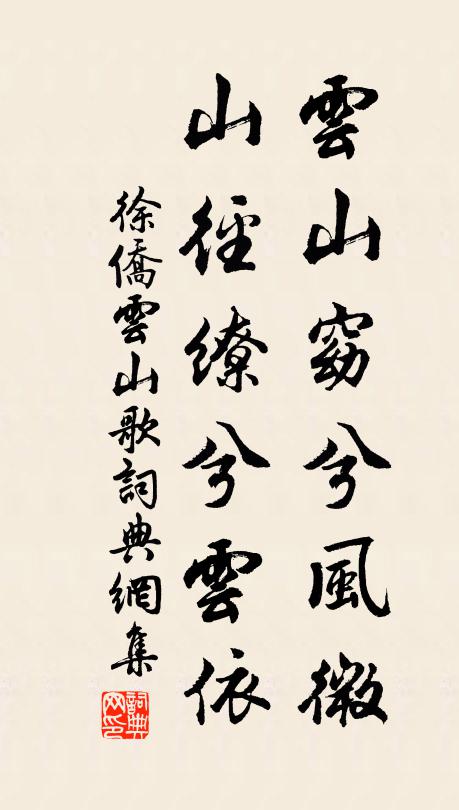 雲山窈兮風微
山徑繚兮雲依
徐僑雲山歌詞典網集
詞典
网印